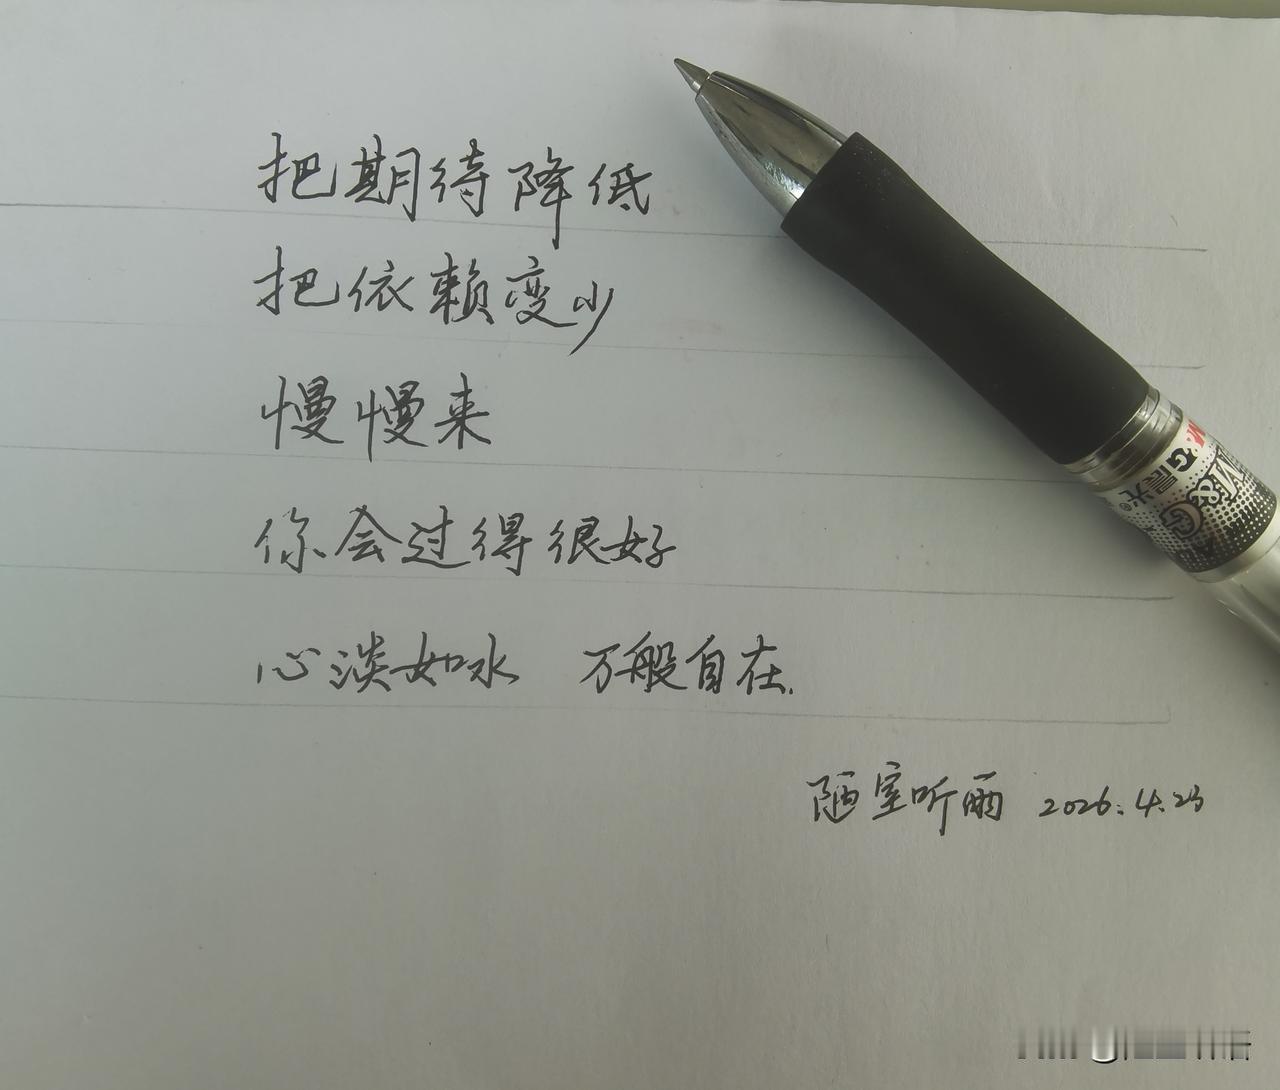 把期待降低
把依赖变少
慢慢来
你会过得很好
心淡如水 万般自在.
陋室听雨 2026.4.23
M&G晨光®
M&G